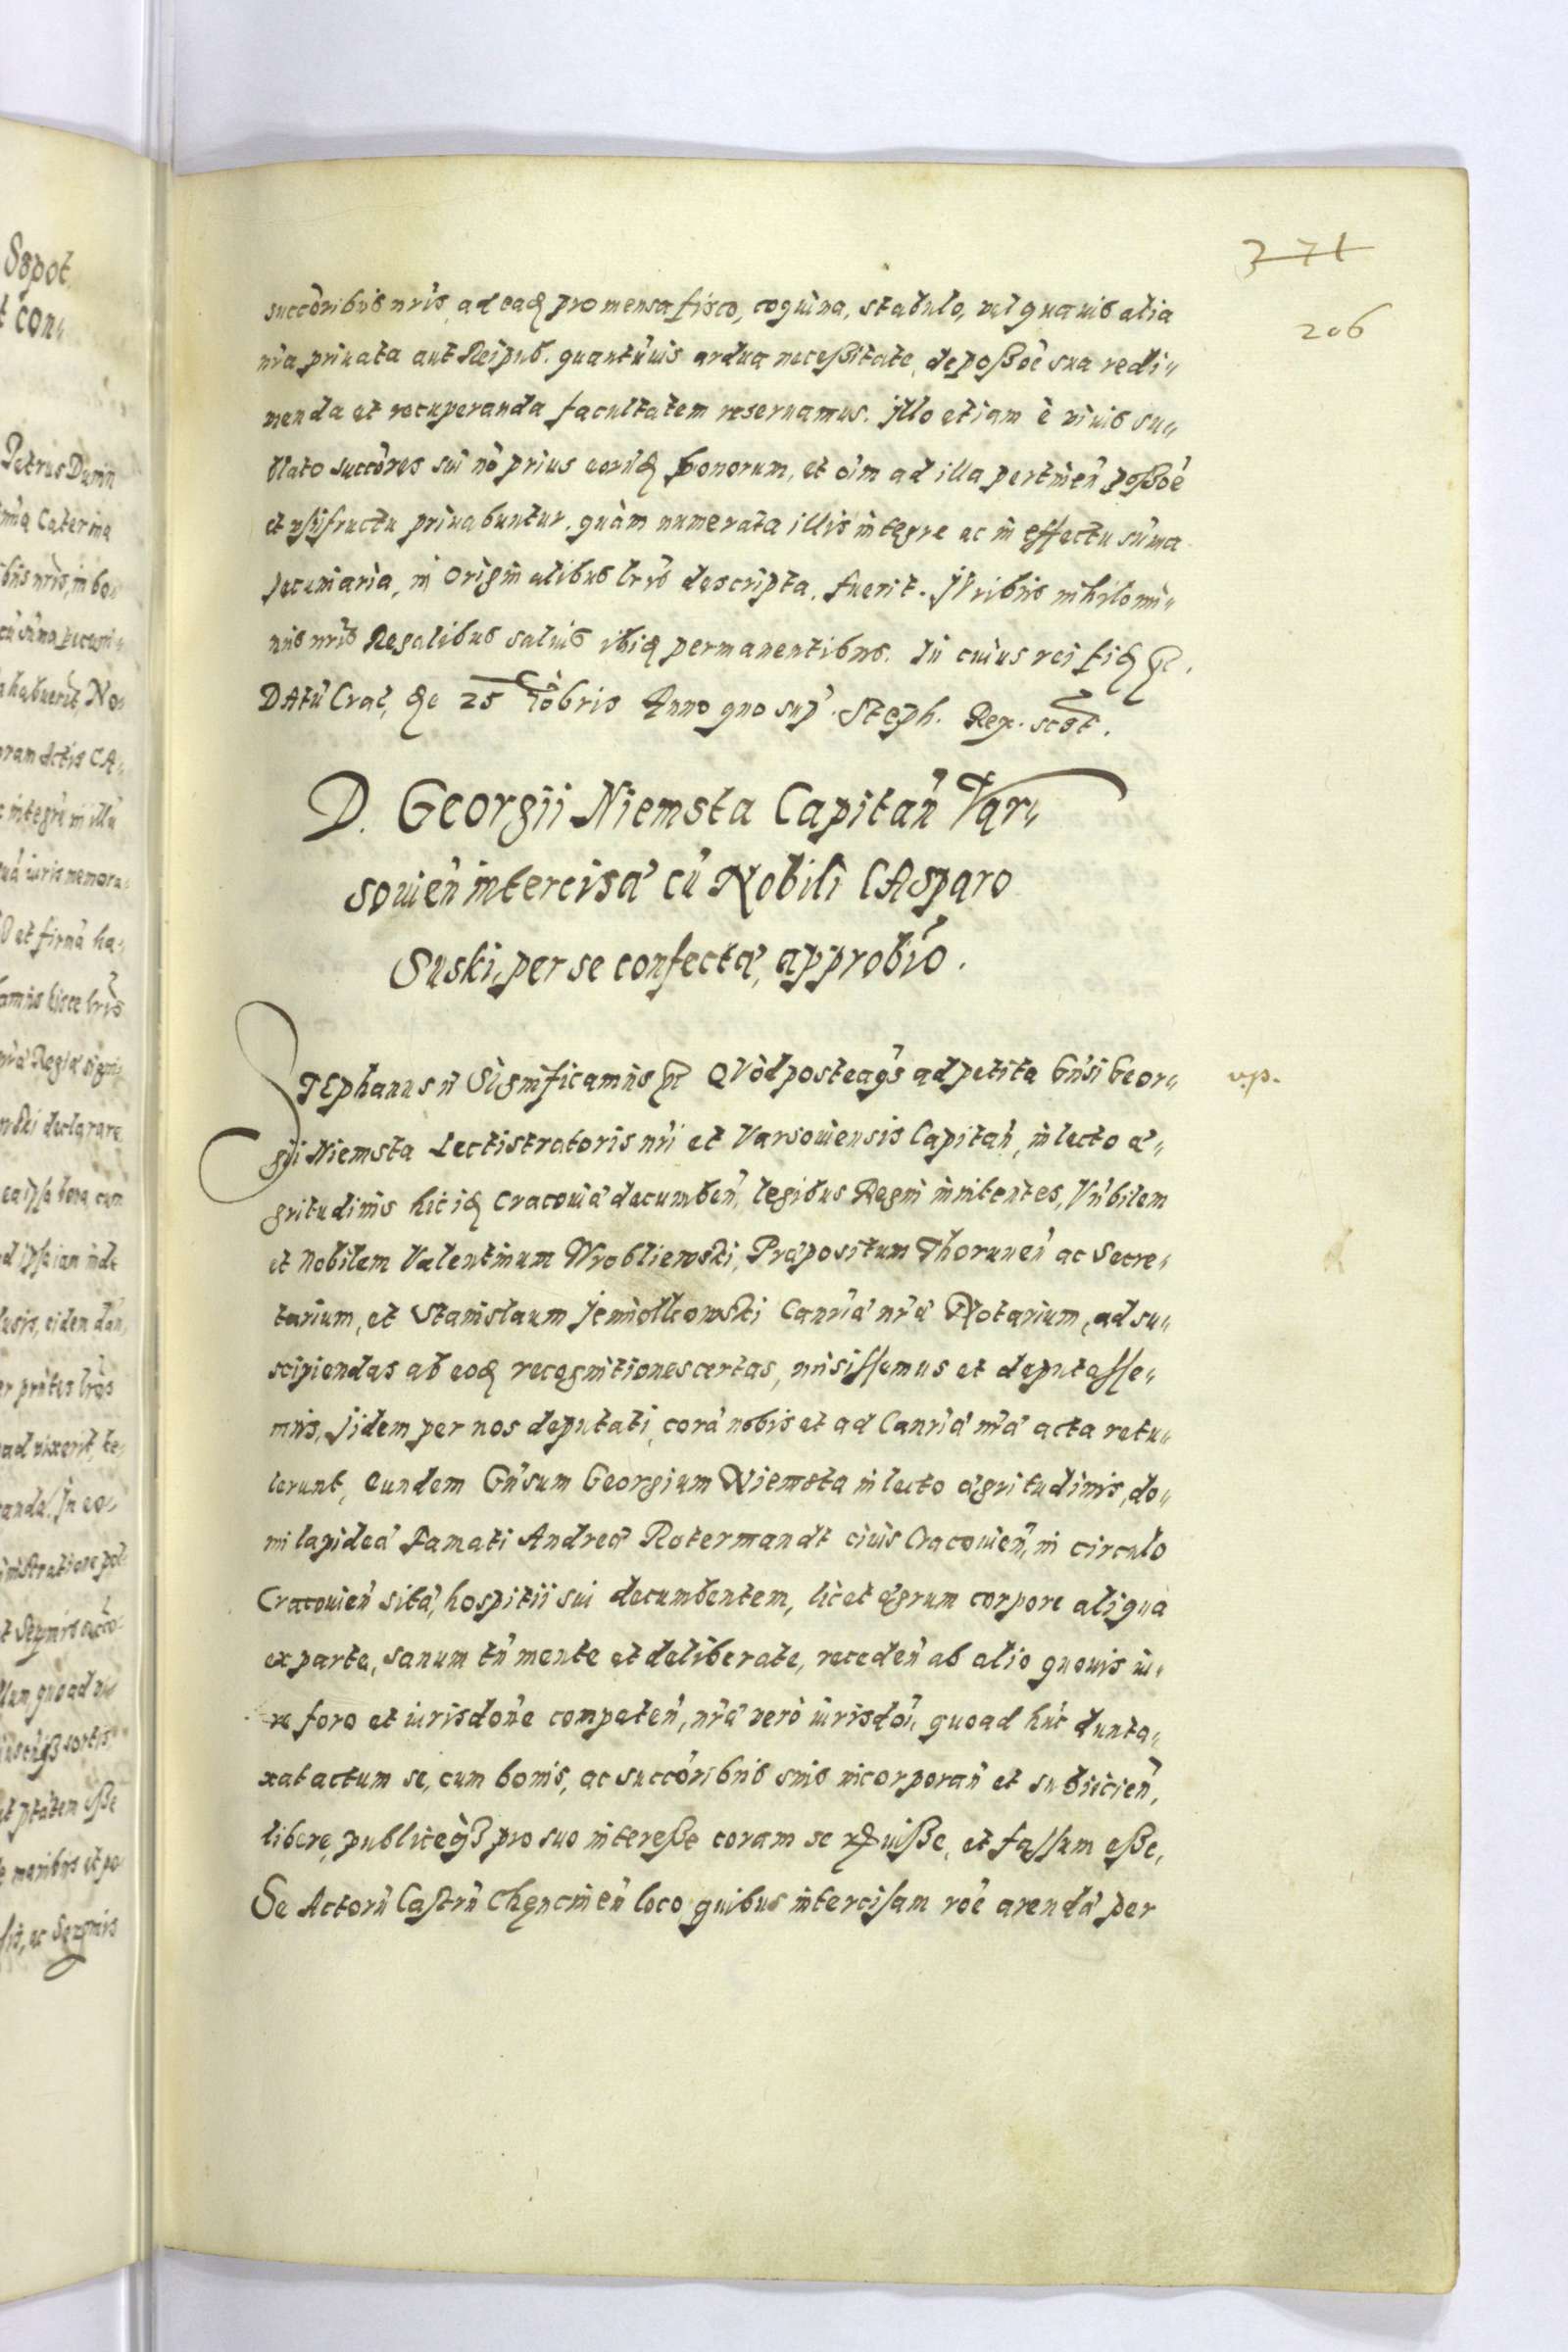 371
206
succoribus nris, ad eadē pro mensa fisco, coquina, stabulo, vel quavis alia
nra privata aut Reipub. quantūvis ardua neceßitate, de poßōe sua redi-
menda et recuperanda facultatem reservamus. Illo etiam è vivis su-
blato succores sui nō prius eorūdē bonorum, et oīm ad illa pertineñ poßōe
et usufructu privabuntur, quàm numerata illis integre ac in effectu sūma
pecuniaria, in originalibus lris descripta, fuerit. Juribus nihilomi-
nus nris Regalibus salvis ibidē permanentibus. In cuius rei fidē etc.
Datū Crac, die 25 Xbris Anno quo sup. Steph. Rex. scst.
D. Georgii Niemsta Capitań Var-
sovień intercisā cū Nobili Casparo
Suski, per se confectā, approbio.
Stephanus etc Significamus etc Quòd posteaq̄ ad petita Gnsi Geor- up.
gii Niemsta Lectistratoris nri et Varsoviensis Capitań, in lecto æ-
gritudinis hic idē Cracoviæ decumbeń, legibus Regni innitentes, Vnbilem
et Nobilem Valentinum Wrobliewski, Præpositum Thorunień ac Secre-
tarium, et Stanislaum Jemiolkowski Canriæ nræ Notarium, ad su-
scipiendas ab eodē recognitiones certas, misissemus et deputasse-
mus, Jidem per nos deputati, corā nobis et ad Canriæ nræ acta retu-
lerunt, Eundem Gnsum Georgium Niemsta in lecto ægritudinis, do-
mi lapideæ Famati Andreæ Rotermandt civis Cracovień, in circulo
Cracovień sitæ, hospitii sui decumbentem, licet ægrum corpore aliqua
ex parte, sanum tń mente et deliberate, recedeń ab alio quovis iu-
re foro et iurisdone competeń, nræ verò iurisdoi, quoad hūc dunta-
xat actum se, cum bonis, ac succoribus suis incorporań et subiicień,
libere, publiceq̄ß pro suo intereße coram se rquiße, et fassum eße,
Se Actorū Castrń Chęncinień loco quibus intercisam rōe arendæ per